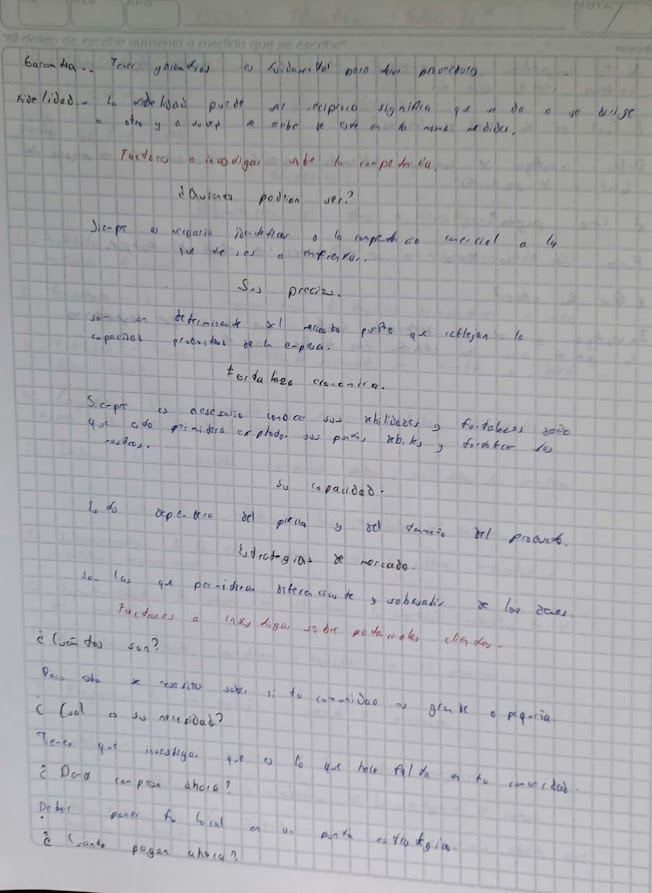 NOTA
"El deseo de escribir aumenta a medida que se escribe"
Garantia.. Tener garantias es fundamental para los provedores.
Fidelidad.- La fidelidad puede ser reciproca significa que se da o se dirige
a otro y a su vez se recibe se este en la misma medidas.
Factores a investigar sobre la competencia.
¿Quienes podrian ser?
Siempre es necesario identificar a la competencia comercial a la
que te vas a enfrentar.
Sus precios.
son un determinante del mercado puesto que reflejan la
capacidad productiva de la empresa.
Fortaleza economica.
Siempre es necesario conocer sus debilidades y fortalezas
que esto permitira explotar sus puntos debiles y fortalecer los
nuestros.
Su capacidad.
dependera del precio y del tamaño del producto.
Estrategias de mercado.
son las que permitiran diferenciarte y sobresalir de los demas.
Factores a investigar sobre potenciales clientes.
¿Cuantos son?
Para esto se necesita saber si tu comunidad es grande o pequeña.
¿Cual es su necesidad?
Tienes que investigar que es lo que hace falta en tu comunidad.
¿Donde compran ahora?
Debes poner tu local en un punto estrategico.
¿Cuanto pagan ahora?